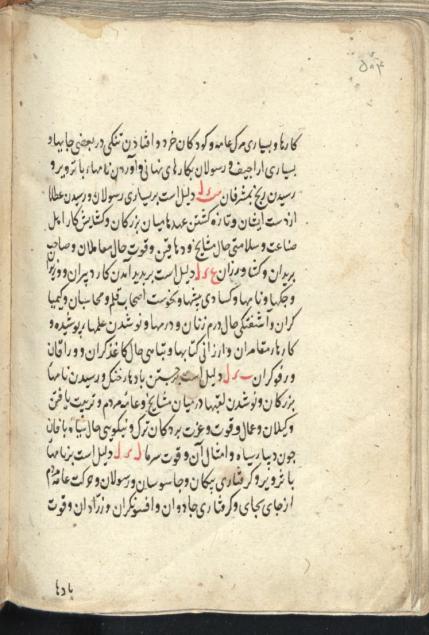 ۵۰۴
کارها و بسیاری مرک عامه و کودکان خرد و افتادن تنکی در بعضی جایها و
بسیاری اراجیف و رسولان بکارهای نهانی و آوردن نامهاء با تزویر و
رسیدن رنج بمشرفان دلیل است بر بسیاری رسولان و رسیدن عطاها
از دست ایشان و تازه کشتن عهدها میان بزرکان و کشایش کار اهل
صناعت و سلامتی حال مشایخ و دهاقین و قوت حال معاملان و صاحب
بریدان و کشاورزان دلیل است بر بد آمدن کار دبیران و وزیران
و جنکها و نامها و کسادی پیشها و نحوست اصحاب قلم و محاسبان و کیمیا
کران و آشفتکی حال درم زنان و درمها و نو شدن علمهاء پوشیده و
کارهاء مقامران و ارزانی کتابها و تباهی حال کاغذ کران و وراقان
و رفوکران دلیل است بر جستن بادهاء خنک و رسیدن نامهاء
بزرکان و نو شدن لقبها در میان مشایخ و عامه مردم و تربیت یافتن
وکیلان و عمال و قوت و عزت بردکان ترک و نیکویی حال
چون دیار سیاه و امثال آن و قوت سرما دلیل است بر نامهاء
با تزویر و کرفتاری پیکان و جاسوسان و رسولان و حرکت عامه مردم
از جای بجای و کرفتاری جادوان و افسونکران و زرادان و قوت
بادها